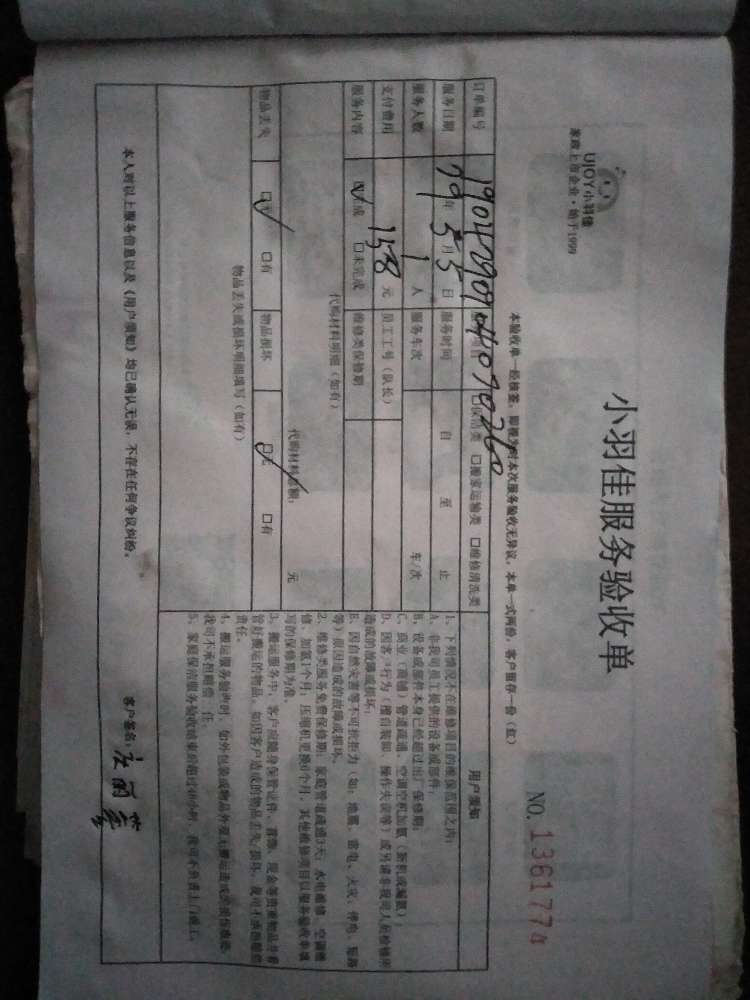 UJOY小羽佳
家政上市企业·始于1999
小羽佳服务验收单
NO. 1361774
本验收单一经核签,即视为对本次服务验收无异议。本单一式两份,客户留存一份(红)
订单编号 190429090407070260 □保洁类 □搬家运输类 □维修清洗类
服务日期 19年5月5日 服务时间 自 至 止
服务人数 1人 服务车次 车/次
支付费用 158元 员工工号(队长)
服务内容 ☑完成 □未完成 维修类保修期
代购材料明细(如有)
代购材料总额: 元
物品丢失 ☑无 □有 物品损坏 ☑无 □有
物品丢失或损坏明细填写(如有)
用户须知
1、下列情况不在维修项目的维保范围之内:
A、非我司员工提供的设备或部件;
B、设备或部件本身已经超过出厂保修期;
C、商业(商铺)管道疏通、空调空机加氨(新机或漏氨);
D、因客户行为(擅自装卸、操作失误等)或另请非我司人员检修所
造成的故障或损坏;
E、因自然灾害等不可抗拒力(如:地震、雷电、火灾、停电、短路
等)原因造成的故障或损坏。
2、维修类服务免费保修期:家庭管道疏通3天;水电维修、空调维
修、加氨1个月;压缩机更换6个月,其他维修项目以服务验收单填
写的保修期为准。
3、搬运服务中,客户应随身保管证件、首饰、现金等贵重物品并看
管好搬运的物品。如因客户造成的物品丢失/损坏,我司不承担赔偿
责任。
4、搬运服务验收时,如外包装或物品外观无搬运造成的损伤痕迹,
我司不承担赔偿责任。
5、家庭保洁服务验收结束后超过48小时,我司不负责上门返工。
本人对以上服务信息以及《用户须知》均已确认无误,不存在任何争议纠纷。
客户签名:庄丽蓉